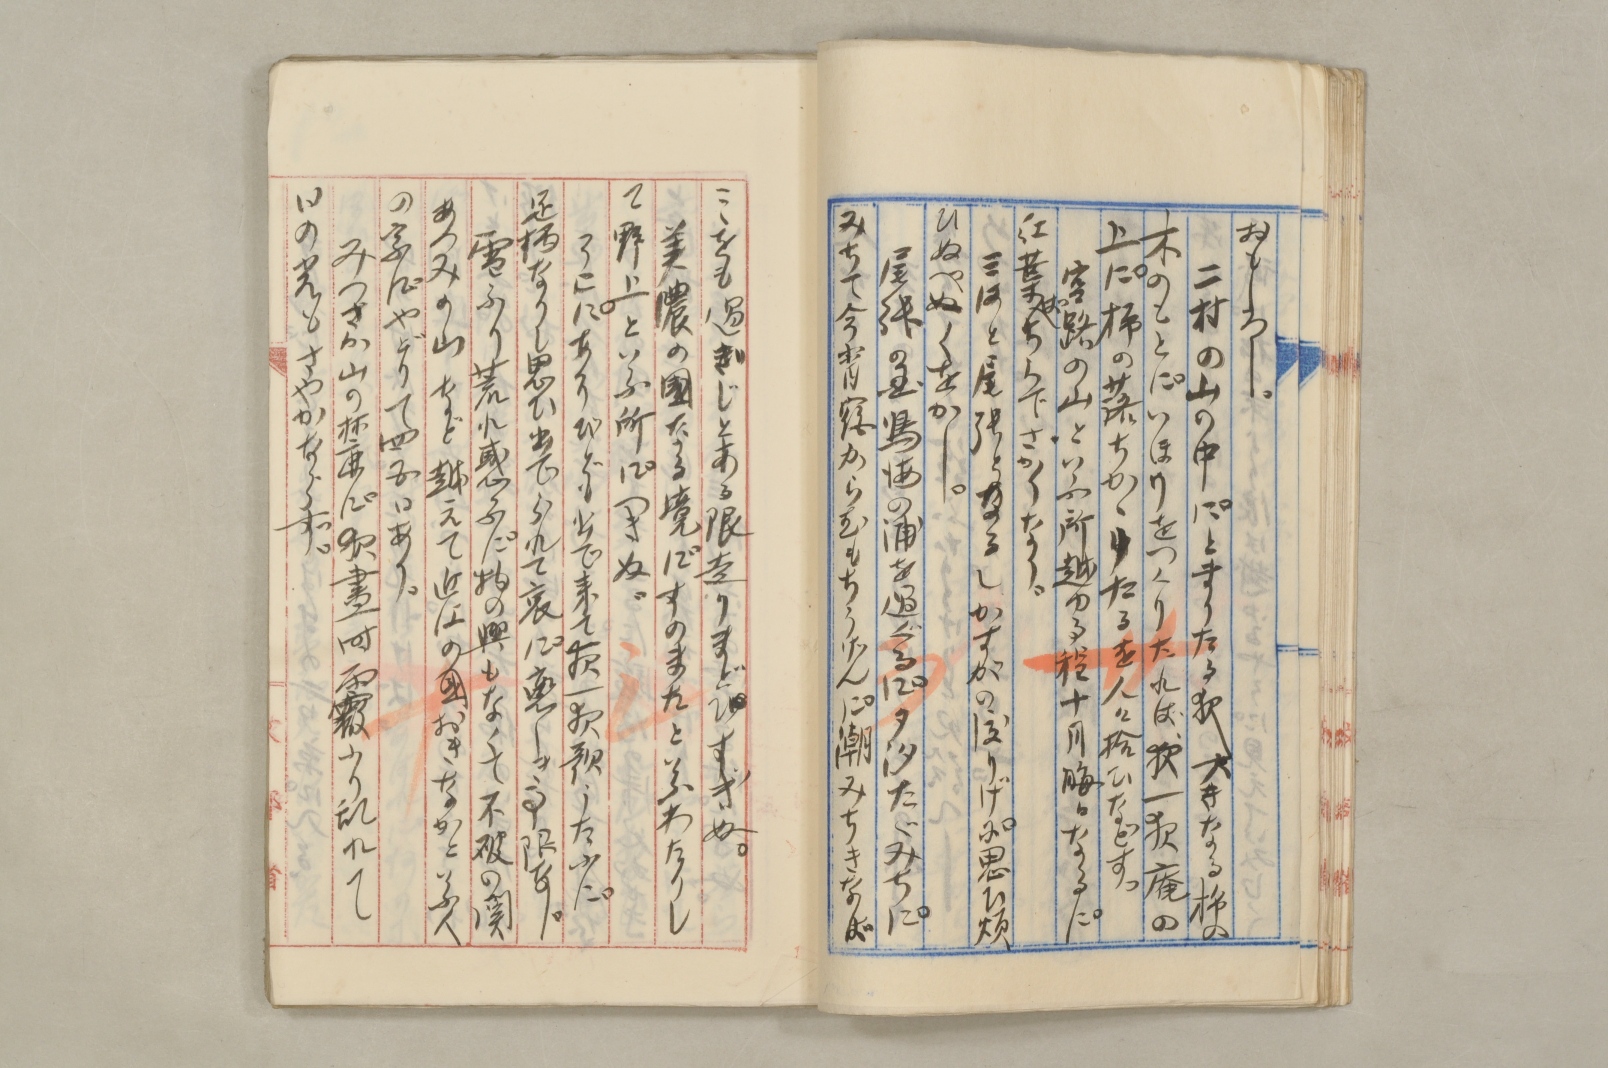 おもしろし。
二村の山の中にとまりたる夜、大きなる柿の
木のもとにいほりをつくりたれば、夜一夜庵の
上に柿の落ちかゝりたるを人々拾ひなどす。
宮路の山といふ所越ゆる程十月晦日なるに。
紅葉ちらでさかりなり。
三河と尾張となるしかすがの渡りげに思ひ煩
ひぬべくをかし。
尾張の国鳴海の浦を過ぐるに夕汐たゞみちに
みちて今宵宿からむもちうげんに潮みちきなば
こゝをも過ぎじとある限走りまどひすぎぬ。
美濃の國なる境にすのまたといふわたりし
て野上といふ所につきぬ。
そこにあそびども出で来て夜一夜歌うたふに
足柄なりし思ひ出でられて哀に恋しき事限なし。
雪ふり荒れ惑ふに物の興もなくて不破の関
あつみの山など越えて近江の國おきなかといふ人
の家にやどりて四五日あり。
みつさか山の麓に夜晝時雨霰ふり乱れて
日の光もさやかならず。